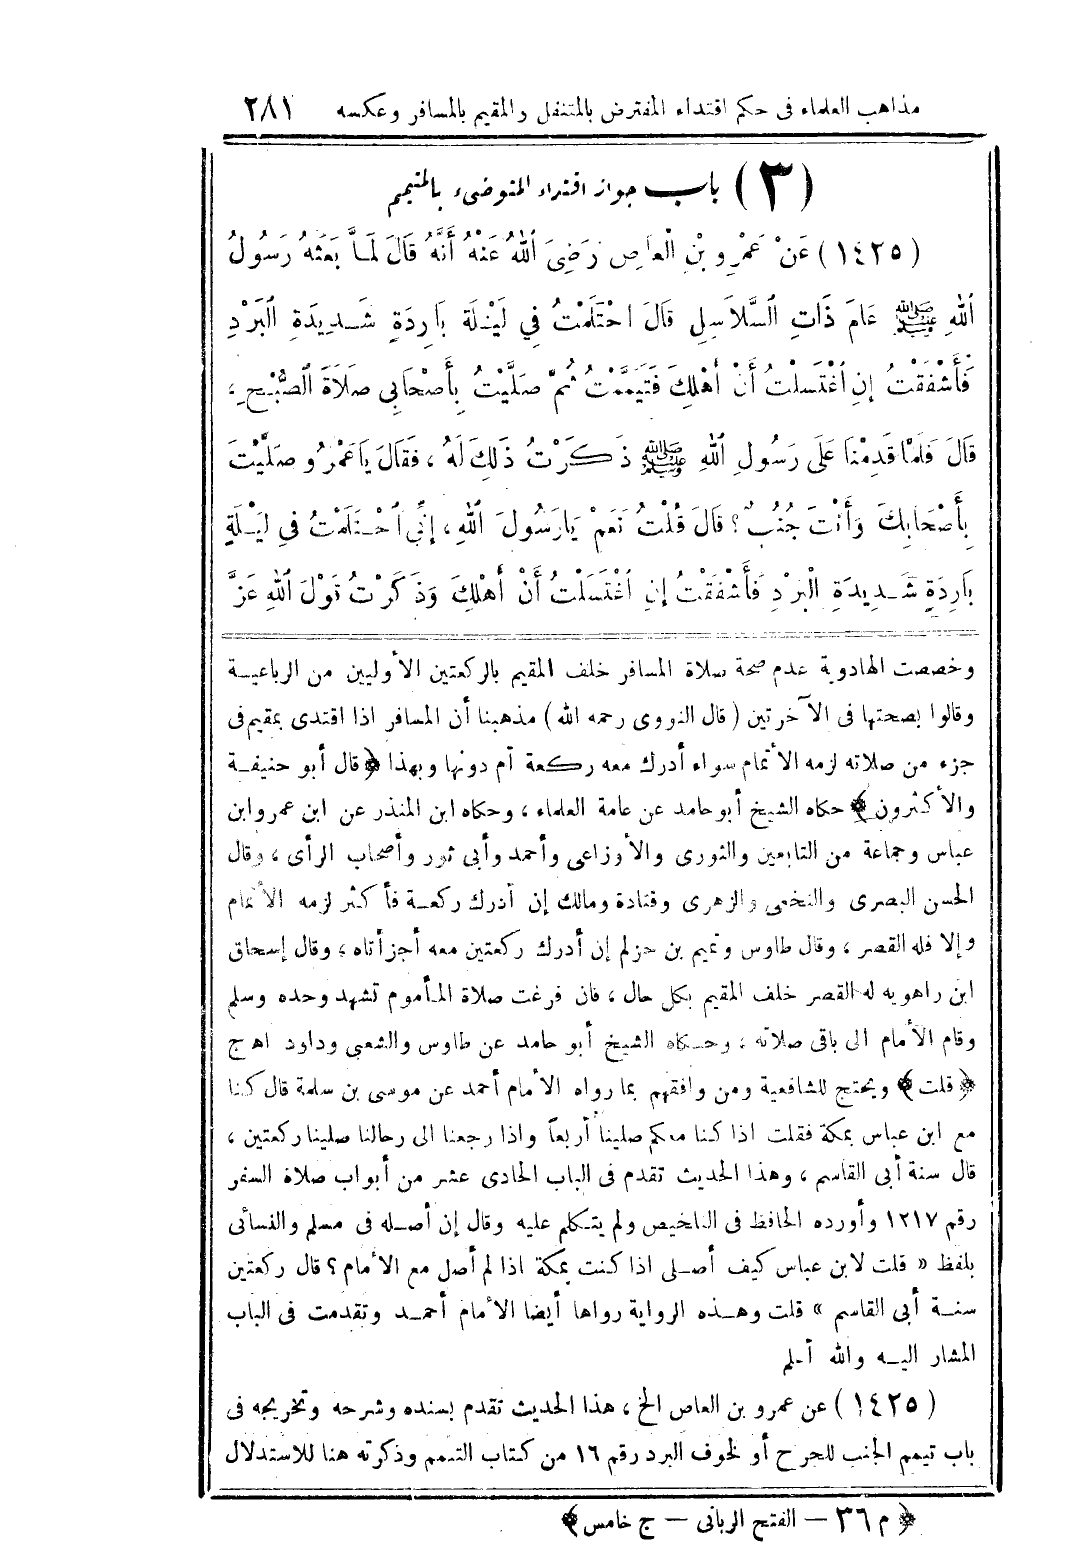 مذاهب العلماء فى حكم اقتداء المفترض بالمتنفل والمقيم بالمسافر وعكسه ٢٨١
(٣) باب جواز اقتداء المتوضىء بالمتيمم
(١٤٢٥) عَنْ عَمْرِو بْنِ الْعَاصِ رَضِيَ اللهُ عَنْهُ أَنَّهُ قَالَ لَمَّا بَعَثَهُ رَسُولُ
اللهِ ﷺ عَامَ ذَاتِ السَّلَاسِلِ قَالَ احْتَلَمْتُ فِي لَيْلَةٍ بَارِدَةٍ شَدِيدَةِ الْبَرْدِ
فَأَشْفَقْتُ إِنِ اغْتَسَلْتُ أَنْ أَهْلِكَ فَتَيَمَّمْتُ ثُمَّ صَلَّيْتُ بِأَصْحَابِي صَلَاةَ الصُّبْحِ ،
قَالَ فَلَمَّا قَدِمْنَا عَلَى رَسُولِ اللهِ ﷺ ذَكَرْتُ ذَلِكَ لَهُ ، فَقَالَ يَاعَمْرُو صَلَّيْتَ
بِأَصْحَابِكَ وَأَنْتَ جُنُبٌ ؟ قَالَ قُلْتُ نَعَمْ يَارَسُولَ اللهِ ، إِنِّي احْتَلَمْتُ فِي لَيْلَةٍ
بَارِدَةٍ شَدِيدَةِ الْبَرْدِ فَأَشْفَقْتُ إِنِ اغْتَسَلْتُ أَنْ أَهْلِكَ وَذَكَرْتُ قَوْلَ اللهِ عَزَّ
وخصصت الهادوية عدم صحة صلاة المسافر خلف المقيم بالركعتين الأوليين من الرباعية
وقالوا بصحتها فى الآخرتين (قال النووى رحمه الله) مذهبنا أن المسافر اذا اقتدى بمقيم فى
جزء من صلاته لزمه الأتمام سواء أدرك معه ركعة أم دونها وبهذا ﴿قال أبو حنيفة
والأكثرون﴾ حكاه الشيخ أبو حامد عن عامة العلماء ، وحكاه ابن المنذر عن ابن عمر وابن
عباس وجماعة من التابعين والثورى والأوزاعى وأحمد وأبى ثور وأصحاب الرأى ، وقال
الحسن البصرى والنخعى والزهرى وقتادة ومالك إن أدرك ركعة فأكثر لزمه الأتمام
وإلا فله القصر ، وقال طاوس وتميم بن حزلم إن أدرك ركعتين معه أجزأتاه ، وقال إسحاق
ابن راهويه له القصر خلف المقيم بكل حال ، فان فرغت صلاة المأموم تشهد وحده وسلم
وقام الأمام الى باقى صلاته ، وحكاه الشيخ أبو حامد عن طاوس والشعبى وداود اهـ ج
﴿قلت﴾ ويحتج للشافعية ومن وافقهم بما رواه الأمام أحمد عن موسى بن سلمة قال كنا
مع ابن عباس بمكة فقلت اذا كنا معكم صلينا أربعاً واذا رجعنا الى رحالنا صلينا ركعتين ،
قال سنة أبى القاسم ، وهذا الحديث تقدم فى الباب الحادى عشر من أبواب صلاة السفر
رقم ١٢١٧ وأورده الحافظ فى التلخيص ولم يتكلم عليه وقال إن أصله فى مسلم والنسائى
بلفظ « قلت لابن عباس كيف أصلى اذا كنت بمكة اذا لم أصل مع الأمام ؟ قال ركعتين
سنة أبى القاسم » قلت وهذه الرواية رواها أيضا الأمام أحمد وتقدمت فى الباب
المشار اليه والله أعلم
(١٤٢٥) عن عمرو بن العاص الخ ، هذا الحديث تقدم بسنده وشرحه وتخريجه فى
باب تيمم الجنب للجرح أو لخوف البرد رقم ١٦ من كتاب التيمم وذكرته هنا للاستدلال
﴿م ٣٦ – الفتح الربانى – ج خامس﴾